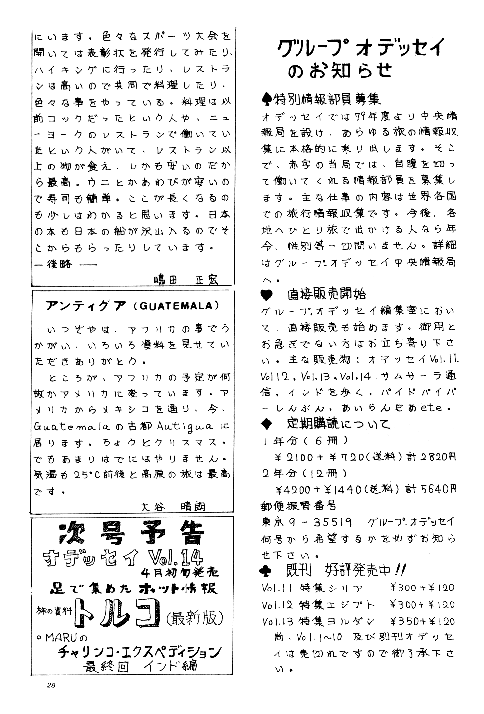 にいます。色々なスポーツ大会を
開いては表彰状を発行してみたり、
ハイキングに行ったり、レストラ
ンは高いので共同で料理したり、
色々な事をやっている。料理は以
前コックだったという人や、ニュ
ーヨークのレストランで働いてい
たという人がいて、レストラン以
上の物が食え、しかも安いのだか
ら最高。ウニとかあわびが安いの
で寿司も簡単。ここが長くなるの
も少しはわかると思います。日本
の本も日本の船が沢山入るのでそ
こからもらったりしています。
―後略―
嶋田 正宏
アンティグア (GUATEMALA)
いつぞやは、アフリカの事でう
かがい、いろいろ資料を見せてい
ただきありがとう。
ところが、アフリカの予定が何
故かアメリカに来っています。ア
メリカからメキシコを通り、今、
Guatemalaの古都Autiguaに
居ります。ちょうどクリスマス。
でもあまりはでにはやりません。
気温も25℃前後と高原の旅は最高
です。
大谷 晴
次号予告
オデッセイ Vol.14
4月初旬発売
足で集めたホット情報
旅の資料 トルコ (最新版)
○MARUの
チャリンコ・エクスペディション
最終回 インド編
28
グループオデッセイ
のお知らせ
♠特別情報部員募集
オデッセイでは79年度より中央情
報局を設け、あらゆる旅の情報収
集に本格的に乗り出します。そこ
で、赤字の当局では、自腹を切っ
て働いてくれる情報部員を募集し
ます。主な仕事の内容は世界各国
での旅行情報収集です。今後、各
地へひとり旅で出かける人なら年
令、性別等一切問いません。詳細
はグループオデッセイ中央情報局
へ。
♥ 直接販売開始
グループオデッセイ編集室におい
て、直接販売も始めます。御用と
お急ぎでない方はお立ち寄り下さ
い。主な販売物：オデッセイVol.11.
Vol.12、Vol.13、Vol.14.サムサーラ通
信、インドを歩く、パイドパイパ
ーしんぶん、あいらんどetc.
◆ 定期購読について
1年分(6冊)
￥2100+￥720(送料)計2820円
2年分(12冊)
￥4200+￥1440(送料)計5640円
郵便振替番号
東京9-35519 グループオデッセイ
何号から希望するかを必ずお知ら
せ下さい。
♣ 既刊 好評発売中!!
Vol.11 特集シリア ￥300+￥120
Vol.12 特集エジプト ￥300+￥120
Vol.13 特集ヨルダン ￥350+￥120
尚、Vol.1~10 及び別刊オデッセ
イは売切れですので御了承下さ
い。